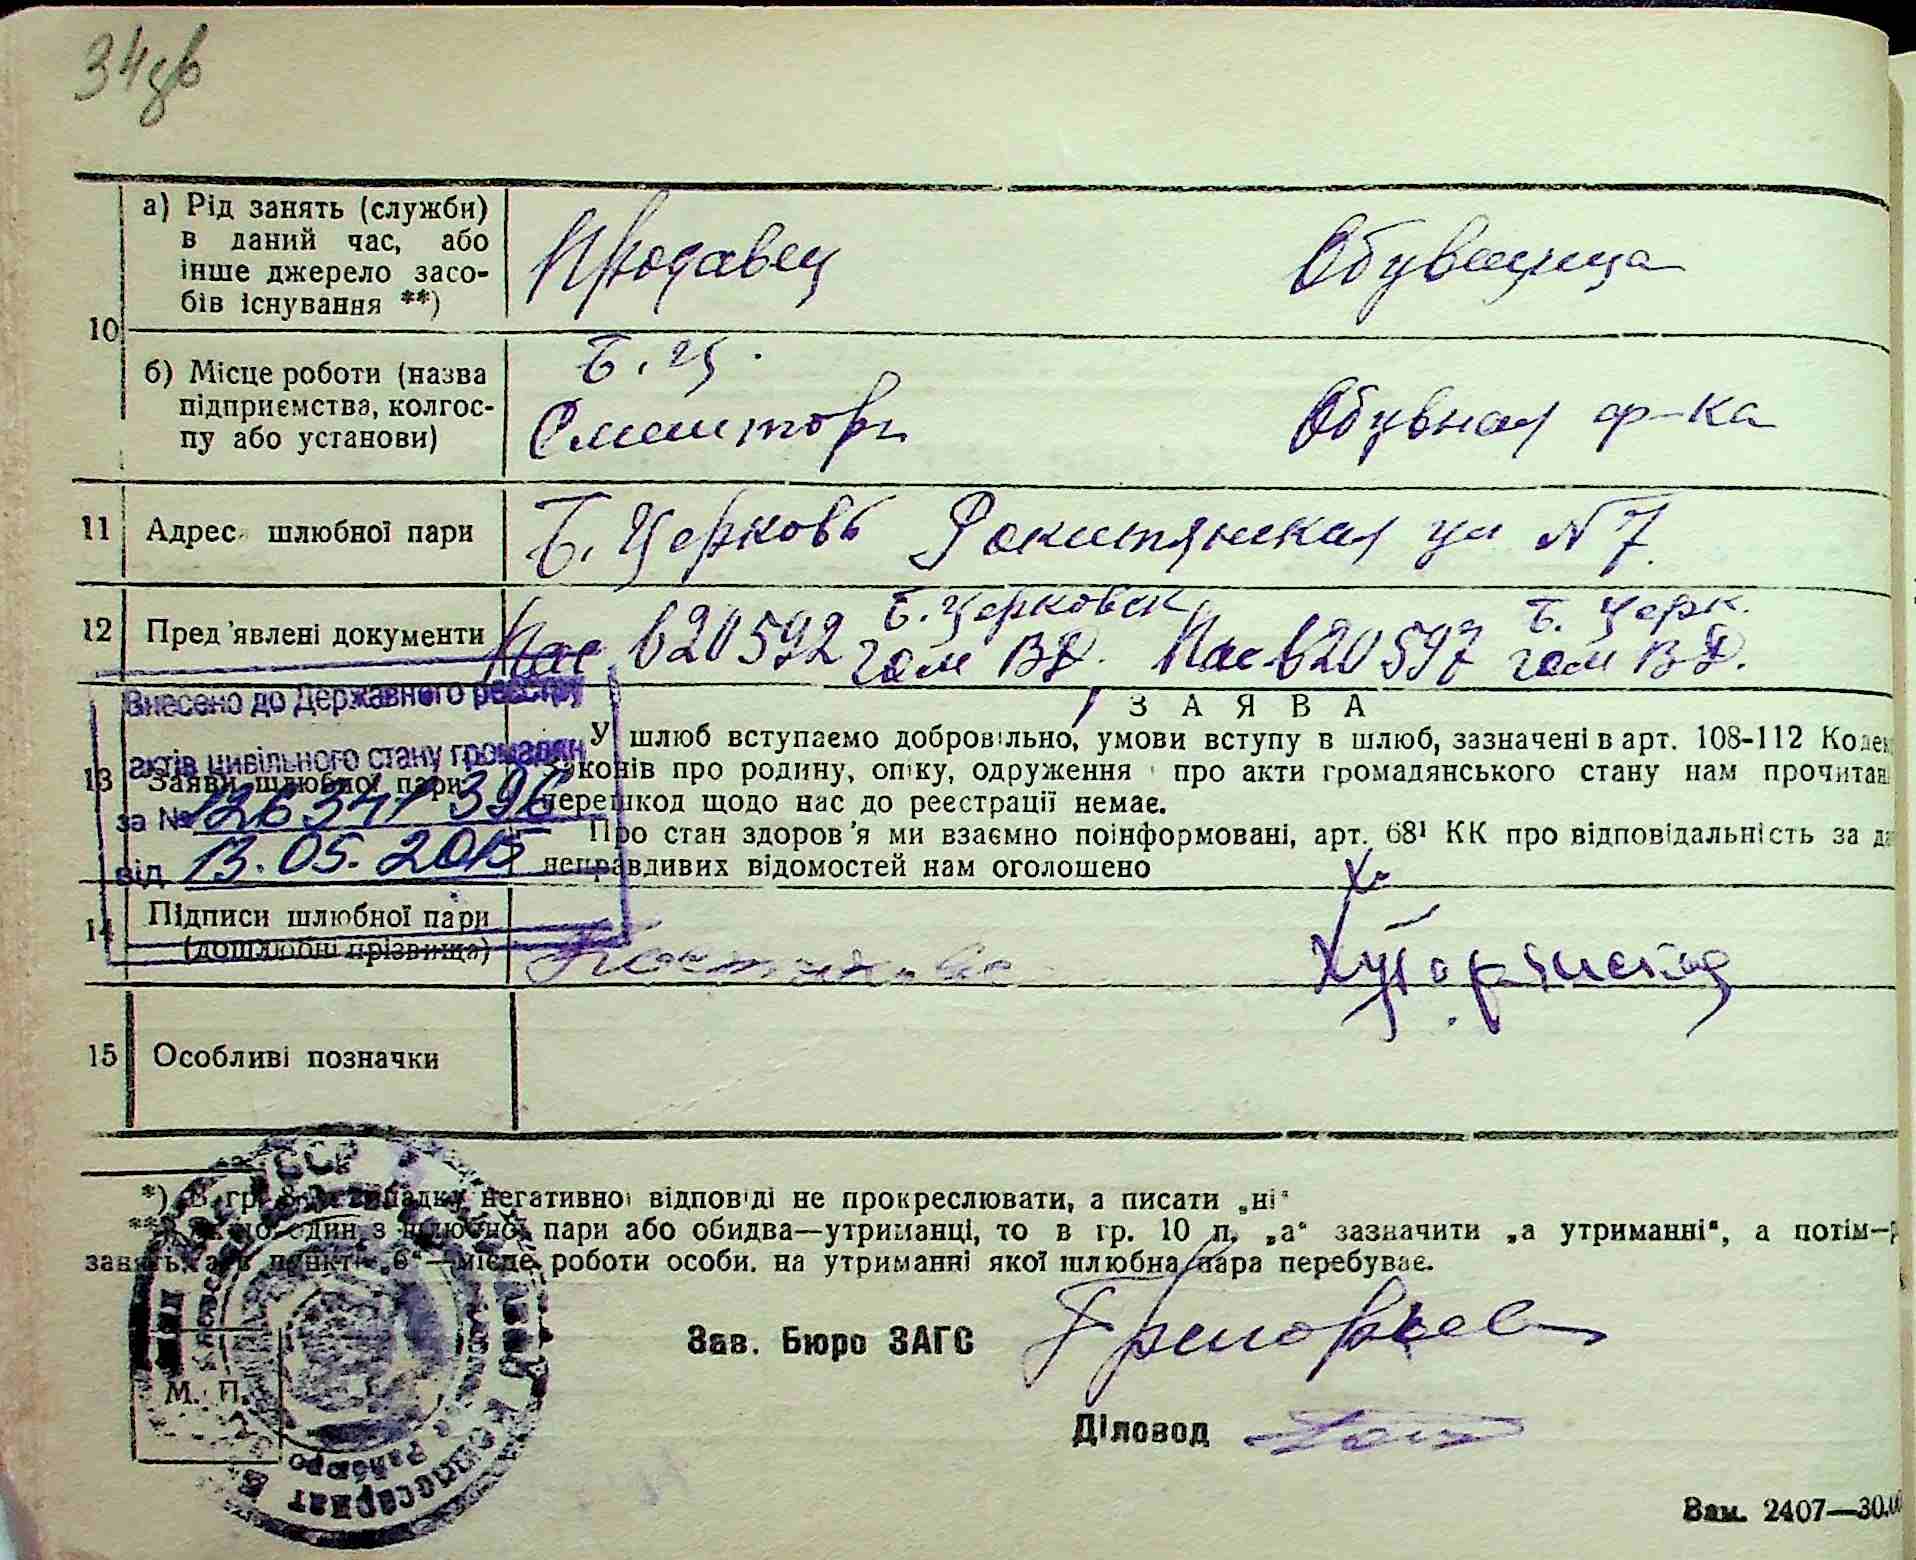 34зв
10
а) Рід занять (служби)
в даний час, або
інше джерело засо-
бів існування **)
Продавец
Обувщица
б) Місце роботи (назва
підприємства, колгос-
пу або установи)
Б. Ц.
Смешторг
Обувная ф-ка
11
Адрес шлюбної пари
Б. Церковь Рокитянская ул N 7
12
Пред'явлені документи
Пас 620592 Б. Церковск
гом ВД.
Пас 620597 Б. Церк.
гом ВД.
Внесено до Державного реєстру
актів цивільного стану громадян
за № 126341396
від 13.05.2015
13
Заяви шлюбної пари
ЗАЯВА
У шлюб вступаємо добровільно, умови вступу в шлюб, зазначені в арт. 108-112
законів про родину, опіку, одруження про акти громадянського стану нам
перешкод щодо нас до реєстрації немає.
Про стан здоров'я ми взаємно поінформовані, арт. 68¹ КК про відповідальність за
неправдивих відомостей нам оголошено
14
Підписи шлюбної пари
(дошлюбні прізвища)
Х
Хуторянская
15
Особливі позначки
*) В гр. 8 випадку негативної відповіді не прокреслювати, а писати „ні“
**) Якщо один з шлюбної пари або обидва—утриманці, то в гр. 10 п. „а“ зазначити „а утриманні“, а потім—
занять, а в пункті „б“—місце роботи особи. на утриманні якої шлюбна пара перебуває.
Зав. Бюро ЗАГС Григорьев
Діловод
М. П.
Зам. 2407—30.